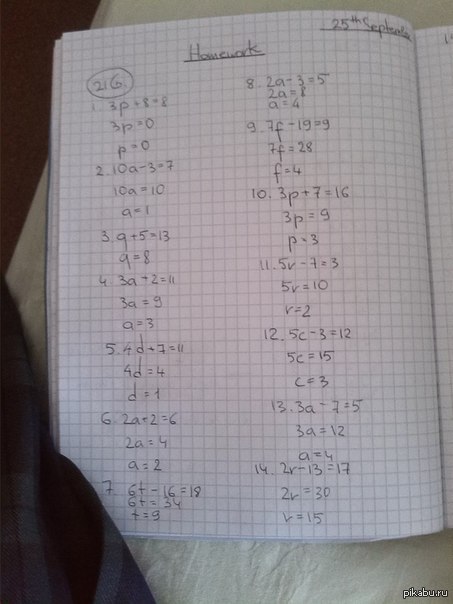 25th Septembe
Homework
21G.
1. 3p+8=8
3p=0
p=0
2. 10a-3=7
10a=10
a=1
3. q+5=13
q=8
4. 3a+2=11
3a=9
a=3
5. 4d+7=11
4d=4
d=1
6. 2a+2=6
2a=4
a=2
7. 6t-16=18
6t=34
t=9
8. 2a-3=5
2a=8
a=4
9. 7f-19=9
7f=28
f=4
10. 3p+7=16
3p=9
p=3
11. 5r-7=3
5r=10
r=2
12. 5c-3=12
5c=15
c=3
13. 3a-7=5
3a=12
a=4
14. 2r-13=17
2r=30
r=15
pikabu.ru